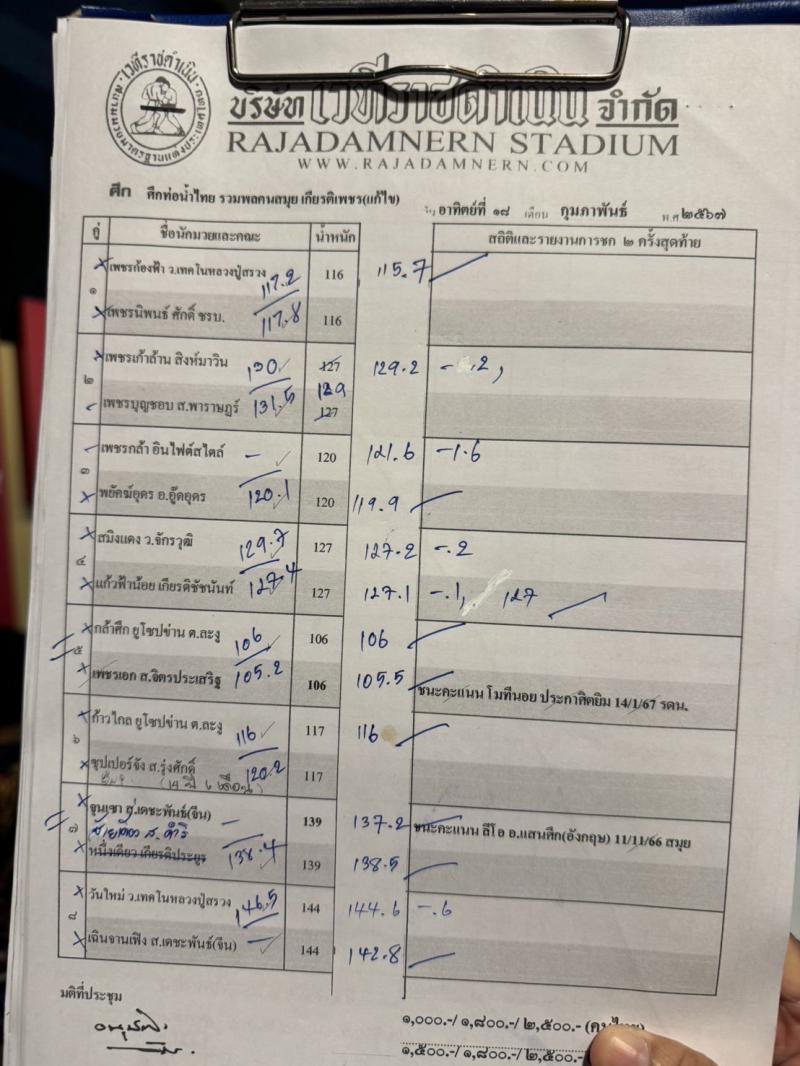 เวทีราชดำเนิน
บริษัท เวทีราชดำเนิน จำกัด
RAJADAMNERN STADIUM
WWW.RAJADAMNERN.COM
ศึก ศึกท่อน้ำไทย รวมพลคนสมุย เกียรติเพชร(แก้ไข)
อาทิตย์ที่ ๑๘ เดือน กุมภาพันธ์ พ.ศ ๒๕๖๗
คู่ ชื่อนักมวยและคณะ น้ำหนัก สถิติและรายงานการชก ๒ ครั้งสุดท้าย
๑ เพชรก้องฟ้า ว.เทคโนหลวงปู่สรวง 117.2 116 115.7
เพชรนิพนธ์ ศักดิ์ ชรบ. 117.8 116
๒ เพชรเก้าล้าน สิงห์มาวิน 130 127 129.2 -.2,
129
เพชรบุญชอบ ส.พาราษฎร์ 131.5 127
๓ เพชรกล้า อินไฟต์สไตล์ - 120 121.6 -1.6
พยัคฆ์อุดร อ.อู๊ดอุดร 120.1 120 119.9
๔ สมิงแดง ว.จักรวุฒิ 129.7 127 127.2 -.2
แก้วฟ้าน้อย เกียรติชัชนันท์ 127.4 127 127.1 -.1, 127
๕ กล้าศึก ยูโซปข่าน ต.ละงู 106 106 106
เพชรเอก ส.จิตรประเสริฐ 105.2 106 105.5 ชนะคะแนน โมทีนอย ประกาศิตยิม 14/1/67 รดน.
๖ ก้าวไกล ยูโซปข่าน ต.ละงู 116 117 116
ซุปเปอร์จัง ส.รุ่งศักดิ์ 120.2 117
(14 ปี 6 เดือน)
๗ จูนเซา ส.เดชะพันธ์(จีน) - 139 137.2 ชนะคะแนน ลีโอ อ.แสนศึก(อังกฤษ) 11/11/66 สมุย
หนึ่งเดียว เกียรติประยูร 138.4 139 138.5
๘ วันใหม่ ว.เทคโนหลวงปู่สรวง 146.5 144 144.6 -.6
เฉินจานเฟิง ส.เดชะพันธ์(จีน) - 144 142.8
มติที่ประชุม
๑,๐๐๐.-/ ๑,๘๐๐.-/ ๒,๕๐๐.- (คนไทย)
๑,๕๐๐.-/ ๑,๘๐๐.-/ ๒,๕๐๐.-